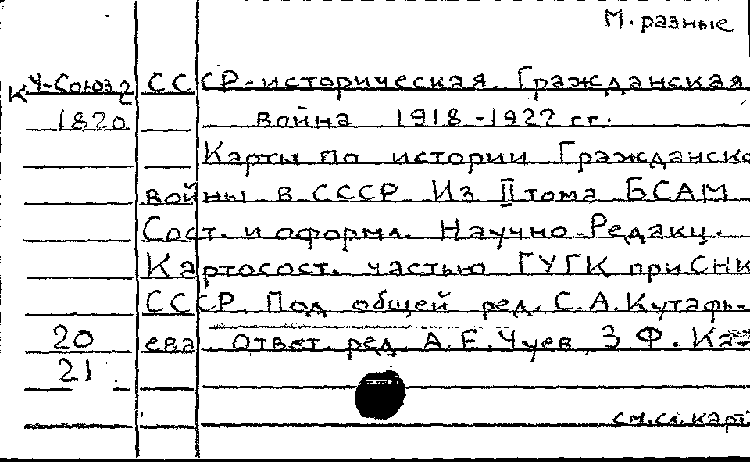 М. разные
К У-Союз 2 СССР-историческая. Гражданская
1820 война 1918-1922 гг.
Карты по истории Гражданско
войны в СССР. Из II тома БСАМ
Сост. и оформл. Научно-Редакц.
Картосост. частью ГУГК при СНК
СССР. Под общей ред. С.А.Кутафь-
20 ева. Ответ. ред. А.Е.Чуев, З.Ф.
21
см.сл.карт